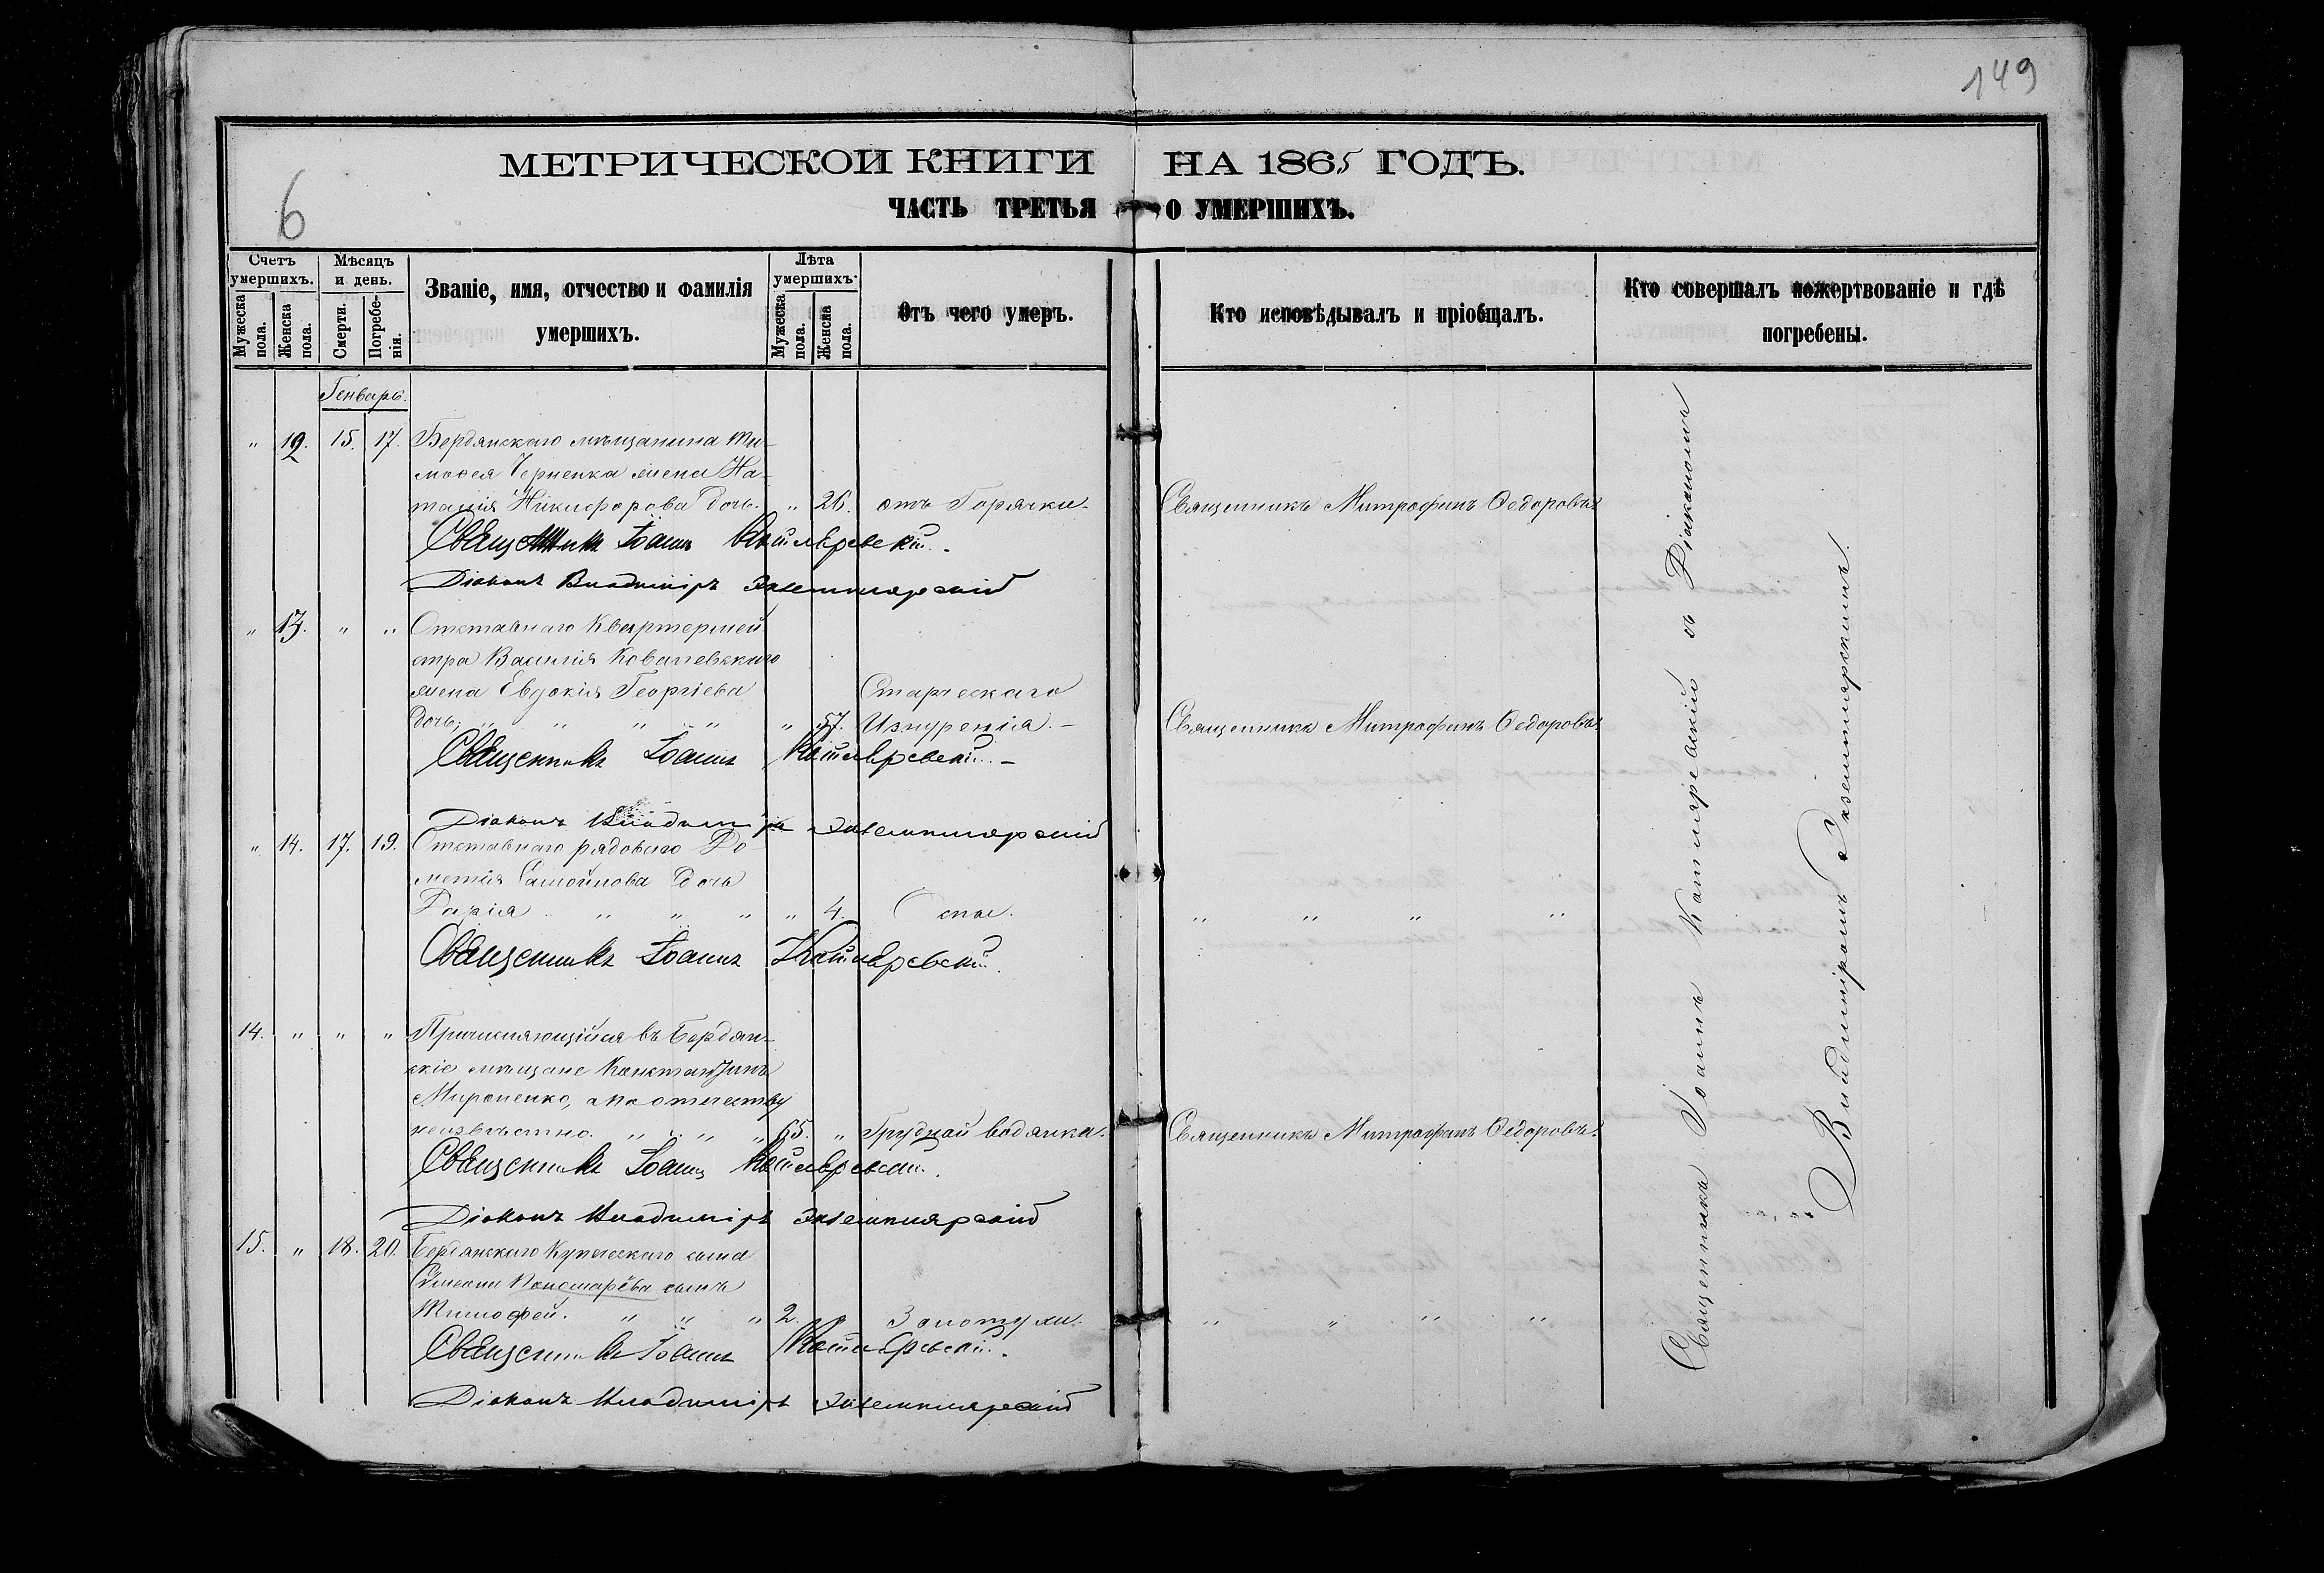 149
МЕТРИЧЕСКОЙ КНИГИ НА 1865 ГОДЪ.
6
ЧАСТЬ ТРЕТЬЯ О УМЕРШИХЪ.
Счетъ умершихъ.
Мужеска пола.
Женска пола.
Мѣсяцъ и день.
Смерти.
Погребенія.
Званіе, имя, отчество и фамилія
умершихъ.
Лѣта умершихъ.
Мужеска пола.
Женска пола.
Отъ чего умеръ.
Кто исповѣдывалъ и пріобщалъ.
Кто совершалъ пожертвованіе и гдѣ
погребены.
Генварь.
" 12. 15. 17. Бердянскаго мѣщанина Ти-
моѳея Черненка жена На-
талія Никифорова дочь. " 26. отъ Горячки. Священникъ Митрофанъ Ѳедоровъ.
Священникъ Іоаннъ Котляревскій.
Діаконъ Владиміръ Экземплярскій
" 13. " " Отставнаго Квартермей
стра Василія Ковалевскаго
жена Евдокія Георгіева Старческаго
дочь. " " " " " 57. Изнуренія. Священникъ Митрофанъ Ѳедоровъ.
Священникъ Іоаннъ Котляревскій.
Діаконъ Владиміръ Экземплярскій
" 14. 17. 19. Отставнаго рядоваго
Самойлова дочь
Дарія " " " " 4. Оспы. " " " "
Священникъ Іоаннъ Котляревскій.
14. " " " Причисляющійся въ Бердян-
скіе мѣщане Константинъ
Мироненко, а по отечеству
неизвѣстно. " " " " 65. " Грудной водянки. Священникъ Митрофанъ Ѳедоровъ.
Священникъ Іоаннъ Котляревскій.
Діаконъ Владиміръ Экземплярскій
15. " 18. 20. Бердянскаго Купеческаго сына
Пономарёва сынъ
Тимофей. " " " 2. " Золотухи. " " " "
Священникъ Іоаннъ Котляревскій.
Діаконъ Владиміръ Экземплярскій
Священникъ Іоаннъ Котляревскій съ Діакономъ
Владиміромъ Экземплярскимъ.